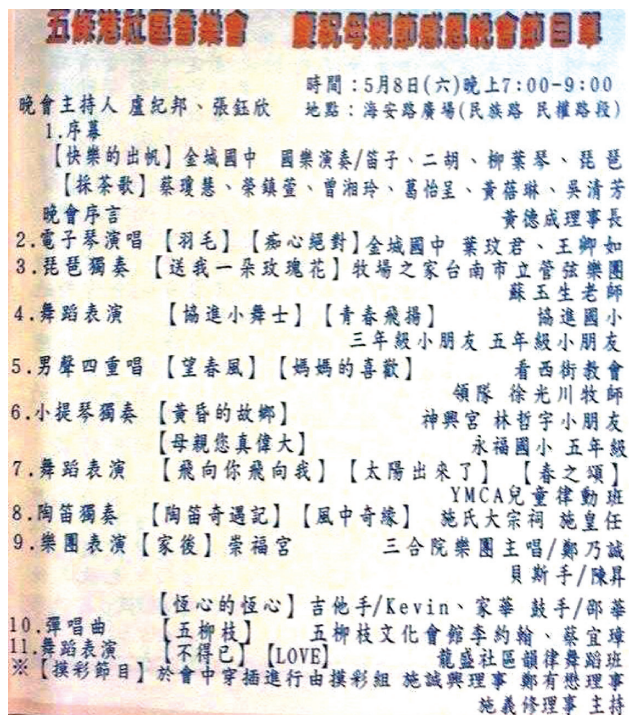 五條港社區音樂會 慶祝母親節感恩晚會節目單
時間：5月8日(六)晚上7:00-9:00
晚會主持人 盧紀邦、張鈺欣 地點：海安路廣場(民族路 民權路段)
1.序幕
【快樂的出帆】金城國中 國樂演奏/笛子、二胡、柳葉琴、琵琶
【採茶歌】蔡瓊慧、榮鎮萱、曾湘玲、葛怡呈、黃蓓琳、吳清芳
晚會序言 黃德成理事長
2.電子琴演唱 【羽毛】【痴心絕對】金城國中 葉玟君、王卿如
3.琵琶獨奏 【送我一朵玫瑰花】牧場之家台南市立管弦樂團
蘇玉生老師
4.舞蹈表演 【協進小舞士】【青春飛揚】 協進國小
三年級小朋友 五年級小朋友
5.男聲四重唱 【望春風】【媽媽的喜歡】 看西街教會
領隊 徐光川牧師
6.小提琴獨奏 【黃昏的故鄉】 神興宮 林哲宇小朋友
【母親您真偉大】 永福國小 五年級
7.舞蹈表演 【飛向你飛向我】【太陽出來了】【春之頌】
YMCA兒童律動班
8.陶笛獨奏 【陶笛奇遇記】【風中奇緣】 施氏大宗祠 施皇任
9.樂團表演【家後】崇福宮 三合院樂團主唱/鄭乃誠
貝斯手/陳昇
【恆心的恆心】吉他手/Kevin、家華 鼓手/邵華
10.彈唱曲 【五柳枝】 五柳枝文化會館李約翰、蔡宜璋
11.舞蹈表演 【不得已】【LOVE】 龍盛社區韻律舞蹈班
※【摸彩節目】於會中穿插進行由摸彩組 施誠興理事 鄭有懋理事
施義修理事 主持